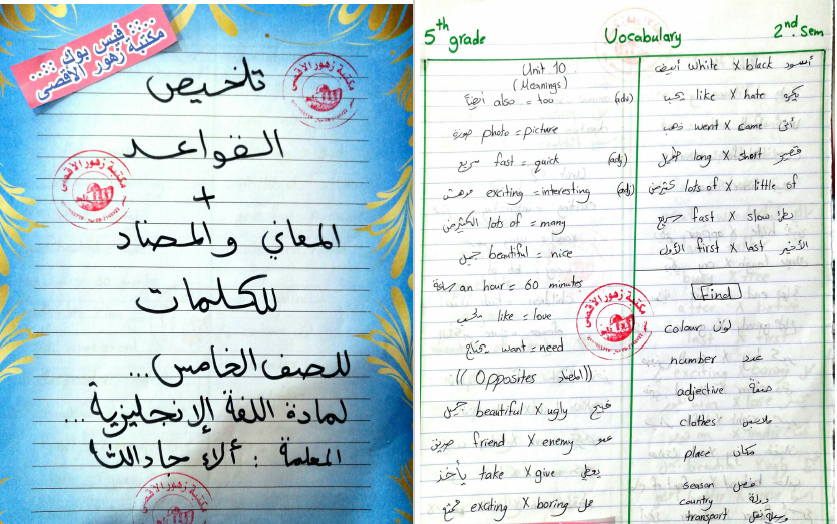 :::: فيس بوك ::::
مكتبة زهور الأقصى
تلخيص
القواعد
+
المعاني والمضاد
للكلمات
للصف الخامس...
لمادة اللغة الإنجليزية...
المعلمة : ألاء جاد الله
مكتبة زهور الاقصى
مكتبة زهور الاقصى
مكتبة زهور الاقصى
5th grade Vocabulary 2nd. Sem
Unit 10
(Meanings)
أيضاً also = too (adv)
صورة photo = picture
سريع fast = quick (adj)
exciting = interesting (adj)
الكثير من lots of = many
جميل beautiful = nice
ساعة an hour = 60 minutes
يحب like = love
يحتاج want = need
(( Opposites المضاد ))
جميل beautiful X ugly قبيح
صديق friend X enemy عدو
يأخذ take X give يعطي
ممتع exciting X boring ممل
أبيض white X black أسود
يحب like X hate يكره
ذهب went X came أتى
طويل long X short قصير
كثير من lots of X little of
سريع fast X slow بطئ
الأول first X last الأخير
Find
colour لون
number عدد
adjective صفة
clothes ملابس
place مكان
season فصل
country دولة
transport وسيلة نقل
مكتبة زهور الاقصى